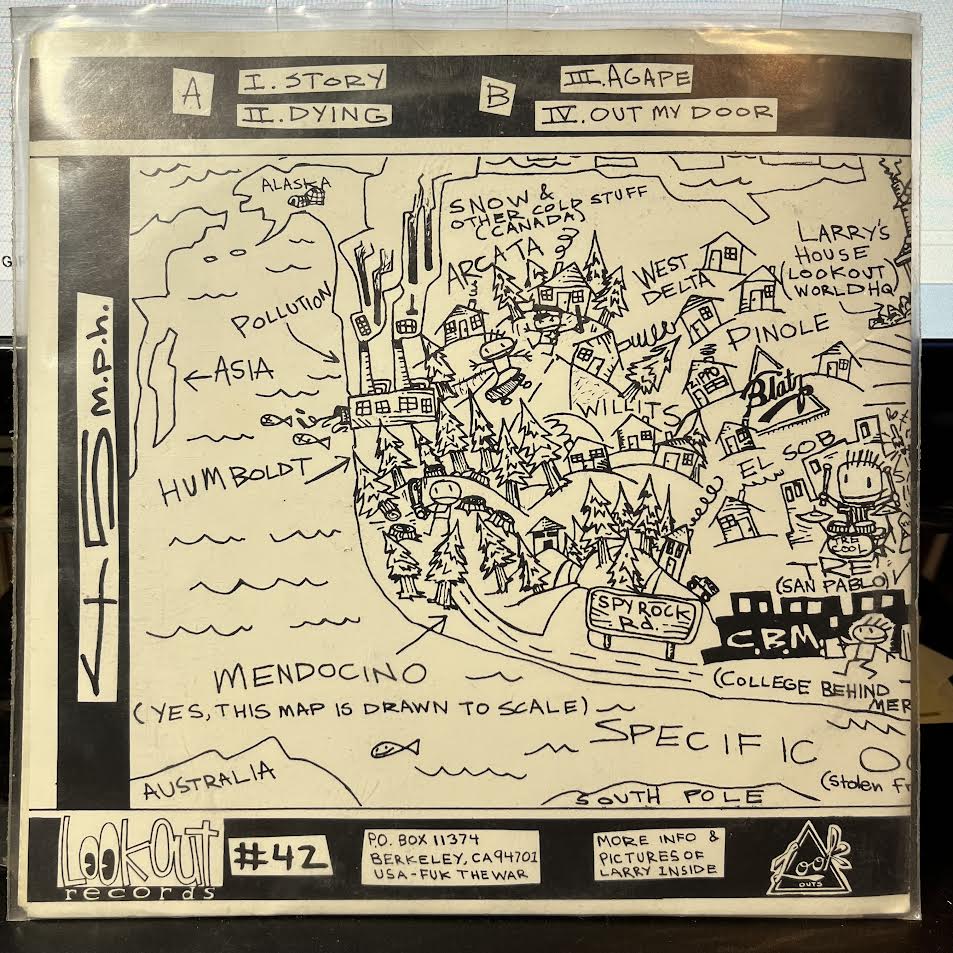 A
I. STORY
II. DYING
B
III. AGAPE
IV. OUT MY DOOR
45 m.p.h.
ALASKA
SNOW &
OTHER COLD STUFF
(CANADA)
ARCATA
WEST
DELTA
LARRY'S
HOUSE
(LOOKOUT
WORLD HQ)
POLLUTION
PINOLE
←ASIA
ZIPPO
Blatz
WILLITS
EL SOB
HUMBOLDT
TRE
COOL
TRE
(SAN PABLO)
SPY ROCK
Rd.
C.B.M.
(COLLEGE BEHIND
MER
MENDOCINO
(YES, THIS MAP IS DRAWN TO SCALE)
SPECIFIC O
(Stolen Fr
AUSTRALIA
SOUTH POLE
LOOKOUT
records
#42
P.O. BOX 11374
BERKELEY, CA 94701
USA-FUK THE WAR
MORE INFO &
PICTURES OF
LARRY INSIDE
Look
OUTS